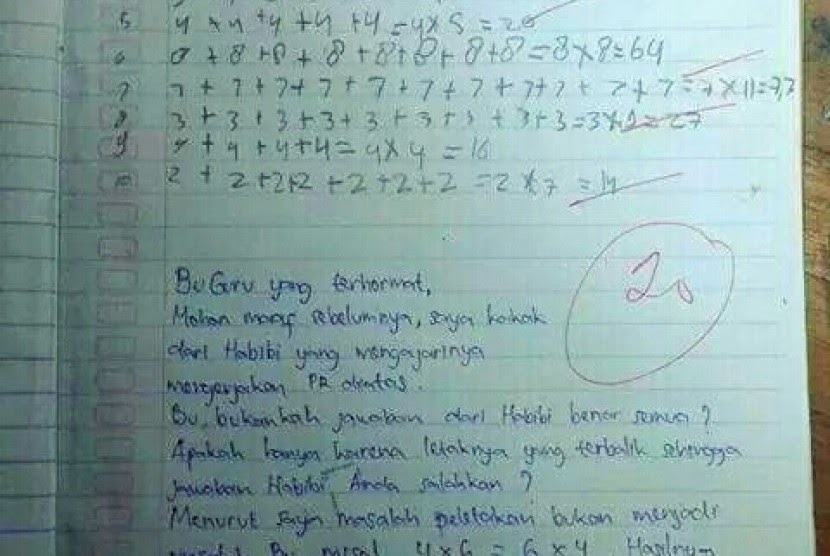 5 4 + 4 + 4 + 4 + 4 = 4 x 5 = 20
6 8 + 8 + 8 + 8 + 8 + 8 + 8 + 8 = 8 x 8 = 64
7 7 + 7 + 7 + 7 + 7 + 7 + 7 + 7 + 7 + 7 + 7 = 7 x 11 = 77
8 3 + 3 + 3 + 3 + 3 + 3 + 3 + 3 + 3 = 3 x 9 = 27
9 4 + 4 + 4 + 4 = 4 x 4 = 16
10 2 + 2 + 2 + 2 + 2 + 2 + 2 = 2 x 7 = 14
20
Bu Guru yang terhormat,
Mohon maaf sebelumnya, saya kakak
dari Habibi yang mengajarinya
mengerjakan PR diatas.
Bu, bukankah jawaban dari Habibi benar semua?
Apakah hanya karena letaknya yang terbalik sehingga
jawaban Habibi Anda salahkan?
Menurut saya masalah peletakan bukan menjadi
Bu misal 4 x 6 = 6 x 4. Hasilnya